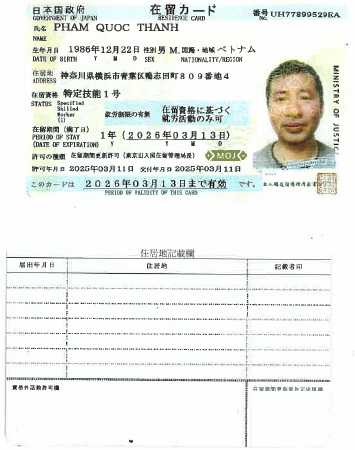 日本国政府 在留カード 番号 UH77899529EA
GOVERNMENT OF JAPAN RESIDENCE CARD
氏名 PHAM QUOC THANH
NAME
生年月日 1986年12月22日 性別 男 M. 国籍・地域 ベトナム
DATE OF BIRTH Y M D SEX NATIONALITY/REGION
住居地 神奈川県横浜市青葉区鴨志田町809番地4
ADDRESS
在留資格 特定技能1号
STATUS Specified
Skilled
Worker
(i)
就労制限の有無 在留資格に基づく
就労活動のみ可
在留期間(満了日) 1年(2026年03月13日)
PERIOD OF STAY
(DATE OF EXPIRATION) Y M D
許可の種類 在留期間更新許可(東京出入国在留管理局長)
MOJ
許可年月日 2025年03月11日 交付年月日 2025年03月11日
このカードは 2026年03月13日まで有効 です。
PERIOD OF VALIDITY OF THIS CARD
MINISTRY OF JUSTICE
住居地記載欄
届出年月日 住居地 記載者印
資格外活動許可欄